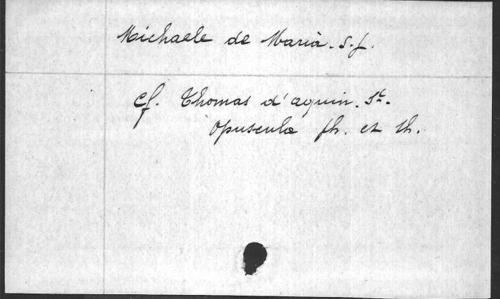 Michaele de Maria. S. J.
Cf. Thomas d'aquin. St.
Opuscula ph. et th.